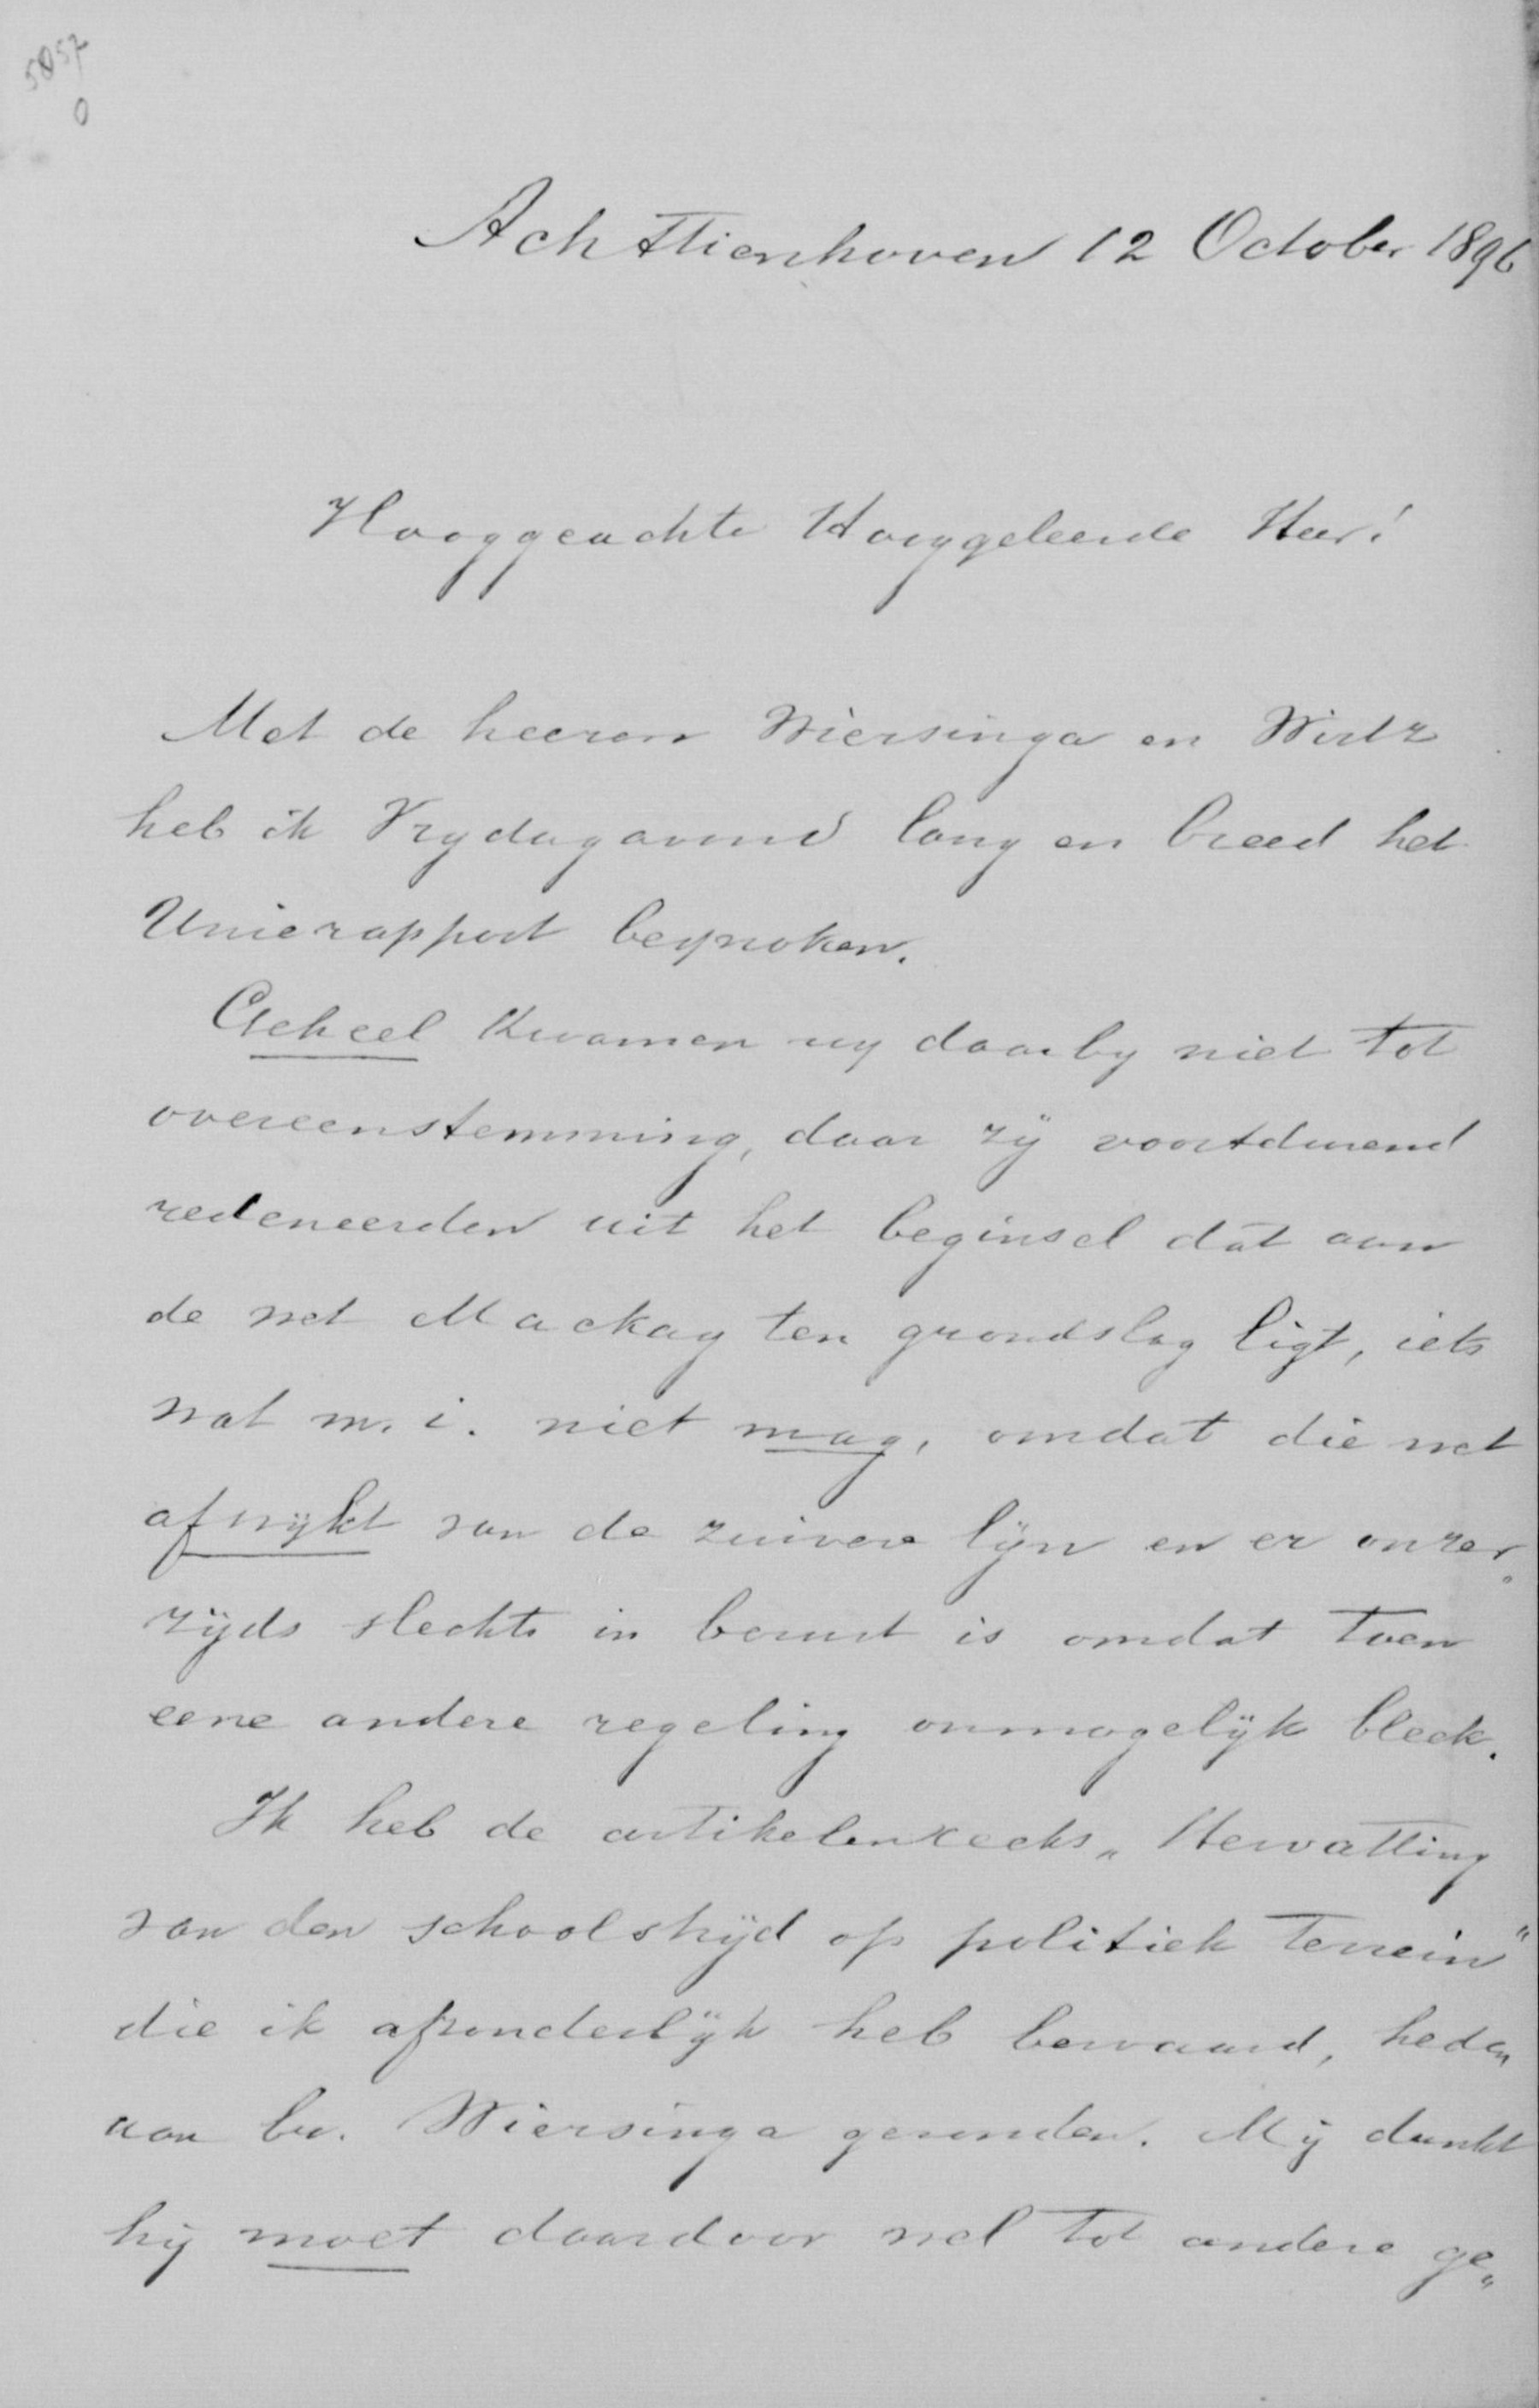 5857
0
Achttienhoven 12 October 1896
Hooggeachte Hooggeleerde Heer!
Met de heeren Wiersinga en Wirtz
heb ik Vrydagavond lang en breed het
Unierapport besproken.
Geheel kwamen wy daarby niet tot
overeenstemming, daar zÿ voortdurend
redeneerden uit het beginsel dat aan
de wet Mackay ten grondslag ligt, iets
wat m. i. niet mag, omdat die wet
afwÿkt van de zuivere lÿn en er onzer„
zÿds slechts in berust is omdat toen
eene andere regeling onmogelÿk bleek.
Ik heb de artikelenreeks „Hervatting
van den schoolstrÿd op politiek terrein"
die ik afzonderlÿk heb bewaard, heden
aan br. Wiersinga gezonden. Mÿ dunkt
hÿ moet daardoor wel tot andere ge„